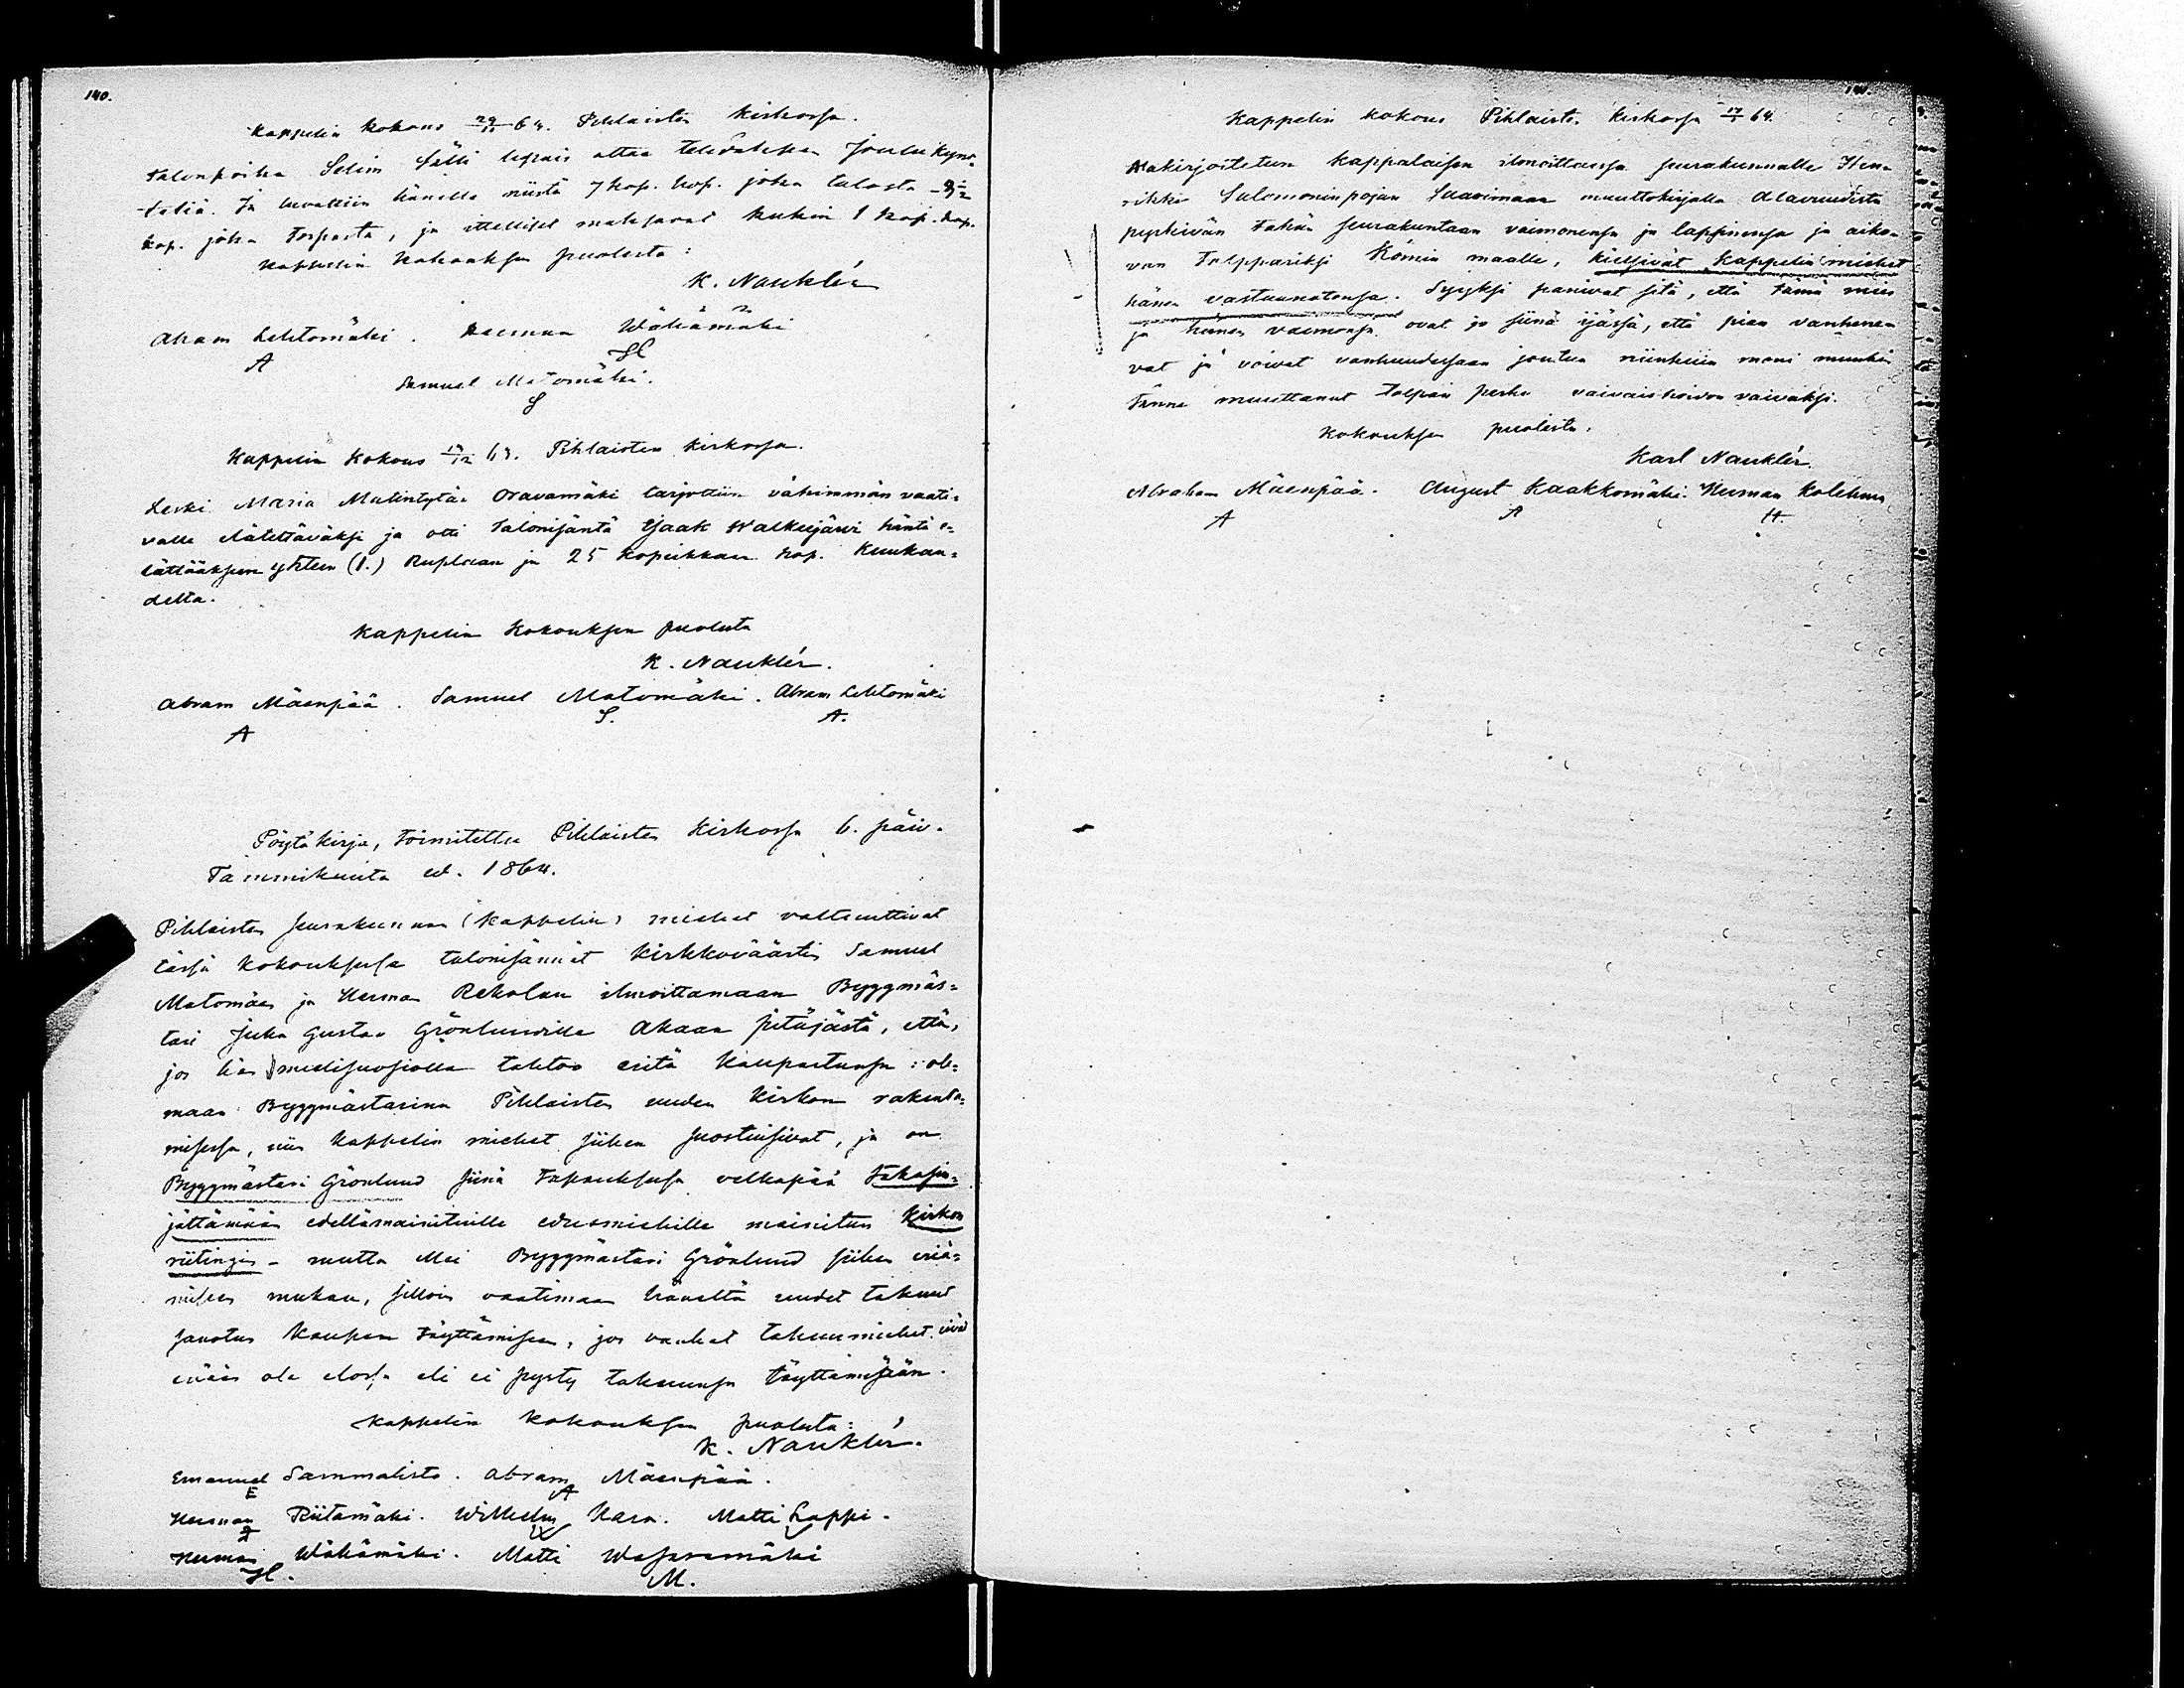 140.
Kappelin Kokous 29/11 63. Pihlaisten Kirkossa.
Talonpoika Selim Sälli lupais ottaa tehdäksen Joulu Kynt-
teliä. Ja luvattiin hänelle niistä 7 kop. hop. joka talosta - 3 1/2
kop. joka torpasta, ja itselliset maksavat kukin 1 kop. hop.
Kappelin Kokouksen puolesta:
K. Nauklér
Abram Lehtomäki. Herman Wähämäki
A H
Samuel Matomäki.
S
Kappelin Kokous 13/12 63. Pihlaisten Kirkossa.
Leski Maria Matintytär Oravamäki tarjottiin vähimmän vaati-
valle elätettäväksi ja otti Talonisäntä Isaak Walkejärvi häntä e-
lättääksen yhteen (1.) Ruplaan ja 25 kopeikkaan hop. Kuukau-
delta.
Kappelin Kokouksen puolesta
K. Nauklér.
Abram Mäenpää. Samuel Matomäki. Abram Lehtomäki
A S. A.
Pöytäkirja, toimitettu Pihlaisten Kirkossa 6. päiv.
Tammikuuta v. 1864.
Pihlaisten seurakunnan (Kappelin) miehet valtuuttivat
tässä Kokouksessa talonisännät Kirkkoväärtin Samuel
Matomäen ja Herman Rekolan ilmoittamaan Byggmäs-
tari Juha Gustav Grönlundille Akaan pitäjästä, että,
jos hän mielisuosiolla tahtoo eritä Kaupastansa: ole-
maan Byggmästarina Pihlaisten uuden Kirkon rakenta-
misessa, niin Kappelin miehet siihen suostuisivat, ja on
Byggmästari Grönlund siinä tapauksessa velkapää takasin-
jättämään edellämainituille edusmiehille mainitun Kirkon
riitingin - mutta ellei Byggmästari Grönlund siihen eriä-
miseen mukau, silloin vaatimaan häneltä uudet takuut
sanotun Kaupan täyttämiseen, jos vanhat takuumiehet eivät
enään ole elossa eli ei pysty takuunsa täyttämisään.
Kappelin Kokouksen puolesta:
K. Nauklér.
Emanuel Sammalisto. Abram Mäenpää.
E A
Herman Riitamäki. Wilhelm Hara. Matti Lappi.
Herman Wähämäki. Matti Wasaramäki
H. M.
141.
Kappelin Kokous Pihlaist. Kirkossa 17/1 64.
Allakirjoitetun Kappalaisen ilmoittaessa seurakunnalle Hen-
rikki Salomoninpojan Saarimaan muuttokirjalla Alavuudesta
pyrkivän tähän seurakuntaan vaimonensa ja lapsinensa ja aiko-
van Torppariksi Kömin maalle, kielsivät Kappelin miehet
hänen vastaanotonsa. Syyksi panivat sitä, että tämä mies
ja hänen vaimonsa ovat jo siinä ijässä, että pian vanhene-
vat ja voivat vanhuudessaan joutua niinkuin moni muukin
tänne muuttanut Torpan perhe vaivaishoidon vaivaksi.
Kokouksen puolesta.
Karl Nauklér.
Abraham Mäenpää. August Kaakkomäki. Herman Kolehma
A A H.